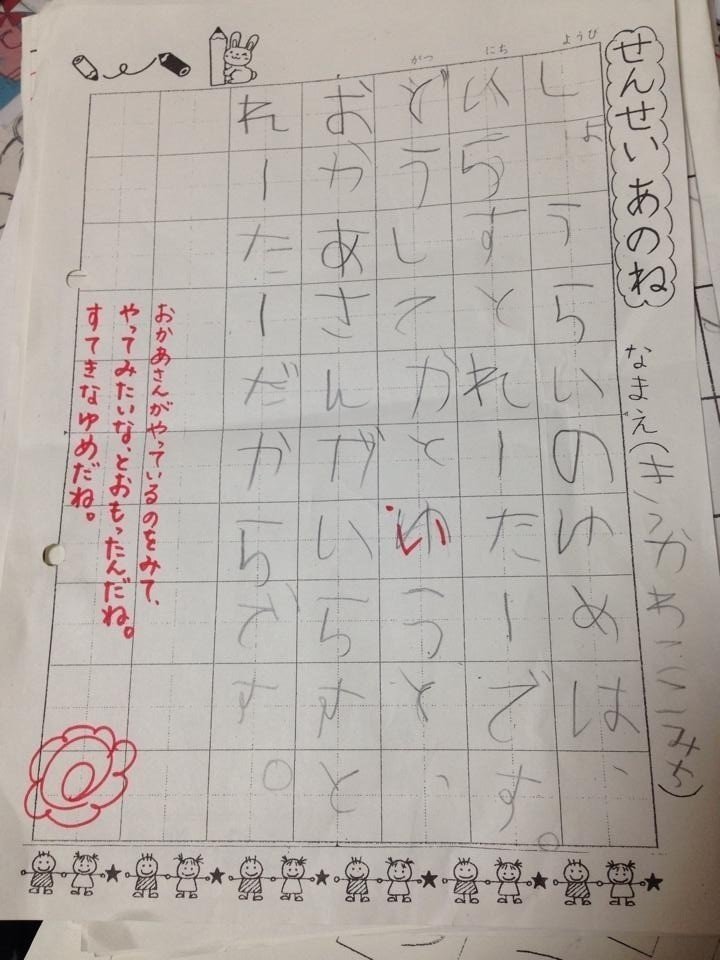 せんせいあのね
なまえ(
がつ　にち　ようび
しょうらいのゆめは、
いらすとれーたーです。
どうしてかとゆうと、
い
おかあさんがいらすと
れーたーだからです。
おかあさんがやっているのをみて、
やってみたいな、とおもったんだね。
すてきなゆめだね。